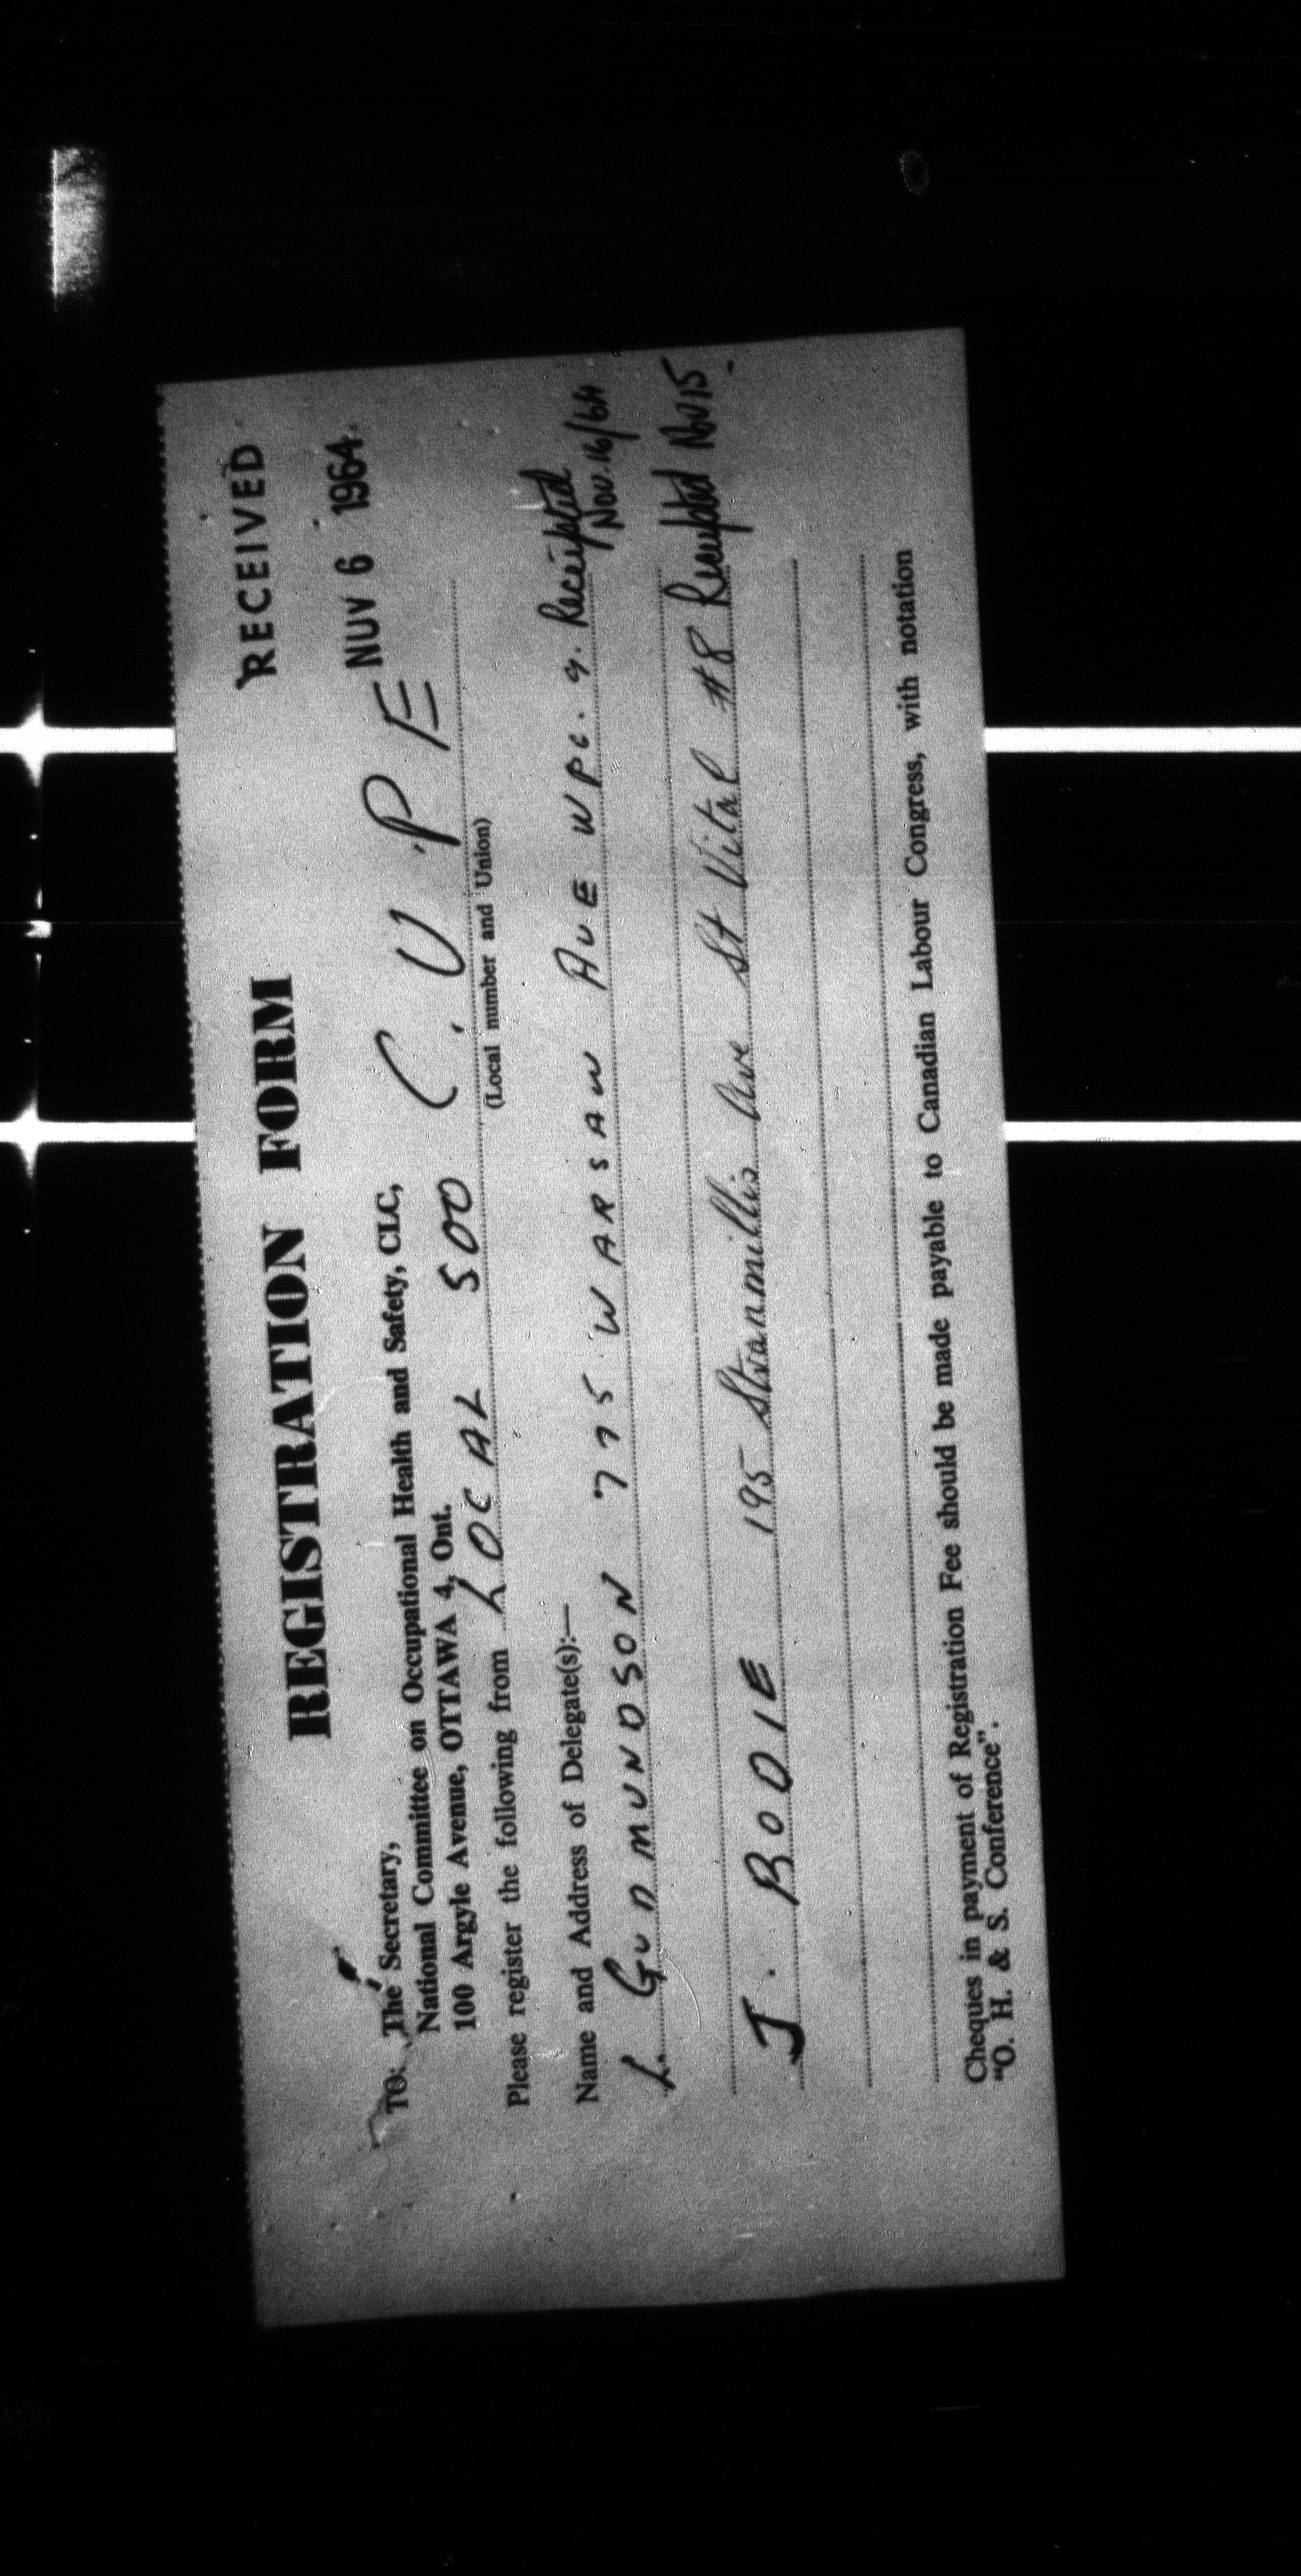 RECEIVED
NOV 6 1964
REGISTRATION FORM
TO: The Secretary,
National Committee on Occupational Health and Safety, CLC,
100 Argyle Avenue, OTTAWA 4, Ont.
Please register the following from LOCAL 500 C.U.P.E
(Local number and Union)
Name and Address of Delegate(s):—
L. GUDMUNDSON 775 WARSAW AVE WPG. 9. Receipted
Nov. 16/64
J. BODIE 195 Stranmillis Ave St Vital #8 Receipted Nov 15
Cheques in payment of Registration Fee should be made payable to Canadian Labour Congress, with notation
"O. H. & S. Conference".